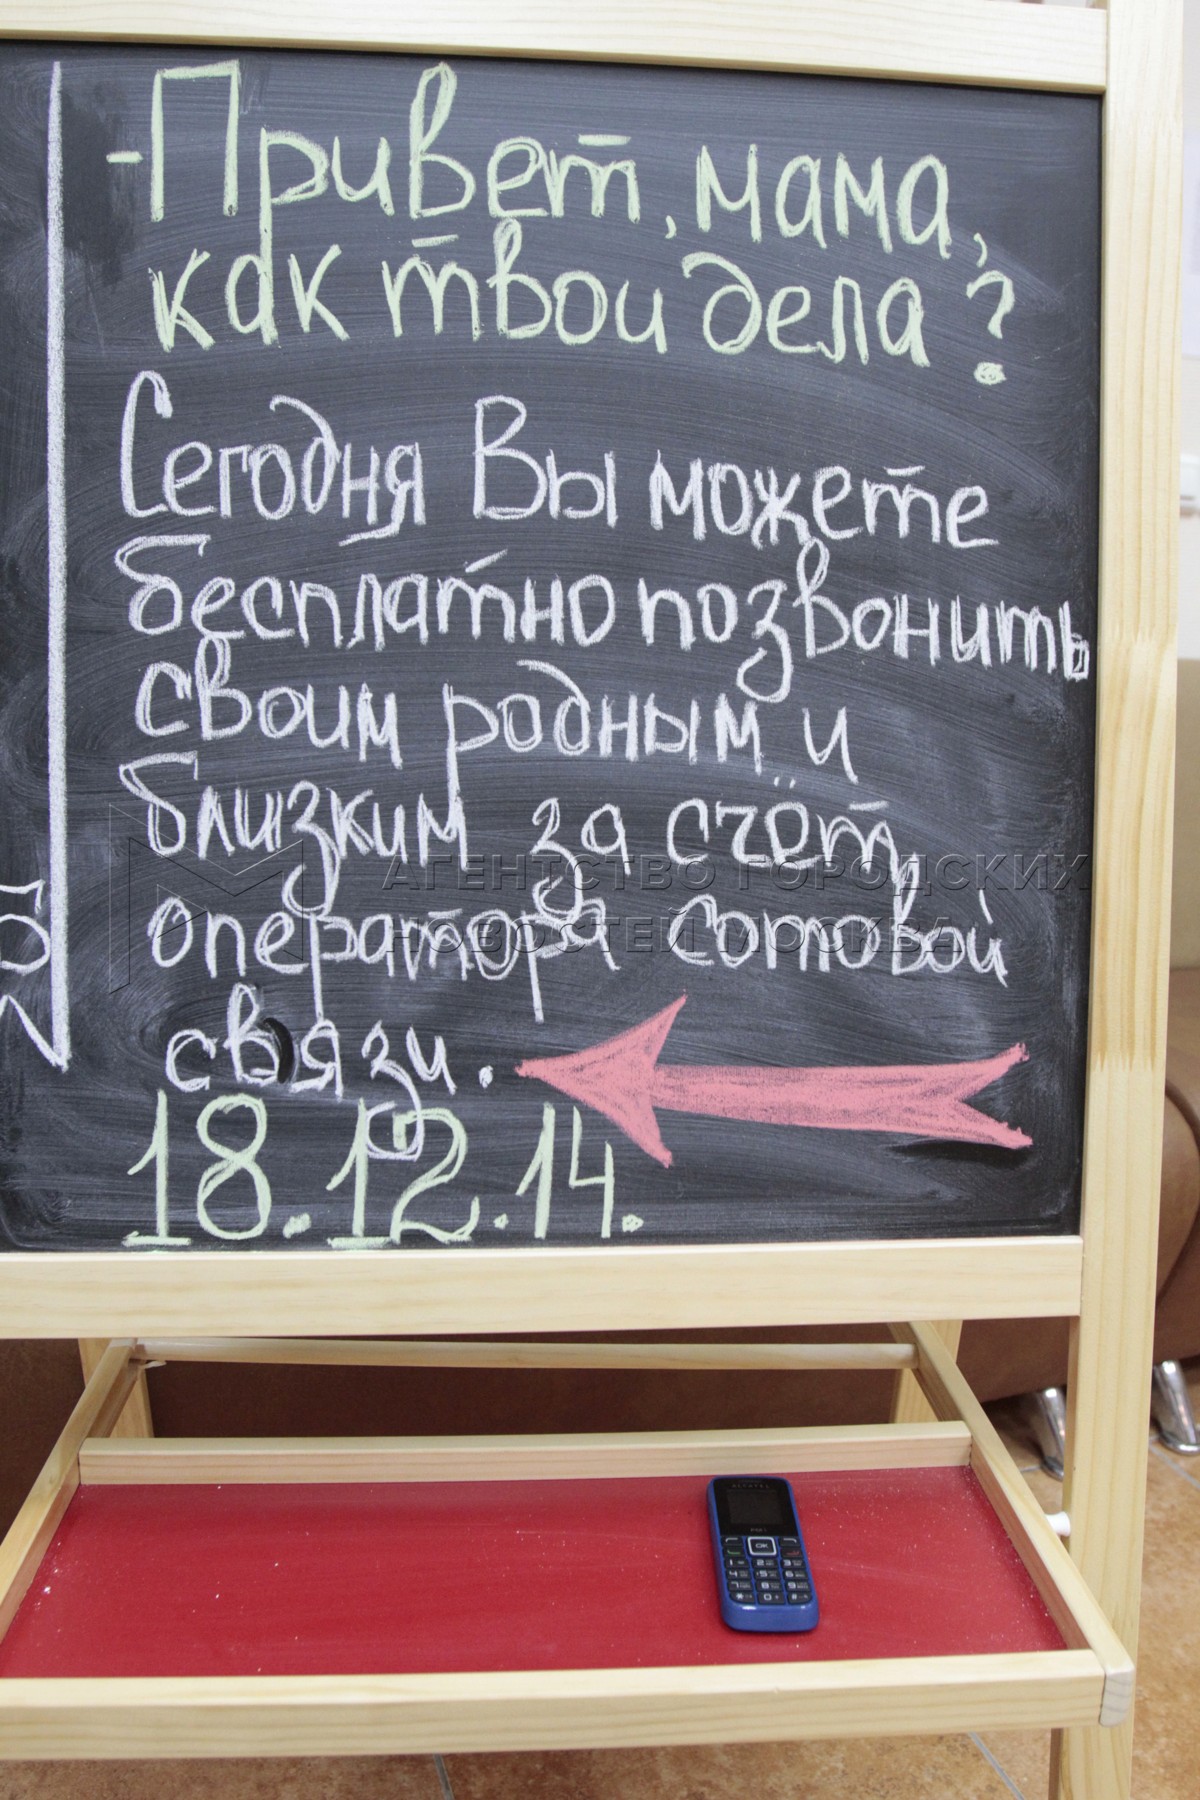 - Привет, мама,
как твои дела?
Сегодня Вы можете
бесплатно позвонить
своим родным и
близким за счёт
оператора сотовой
связи.
18.12.14.
АГЕНТСТВО ГОРОДСКИХ
НОВОСТЕЙ МОСКВА
alcatel
OK